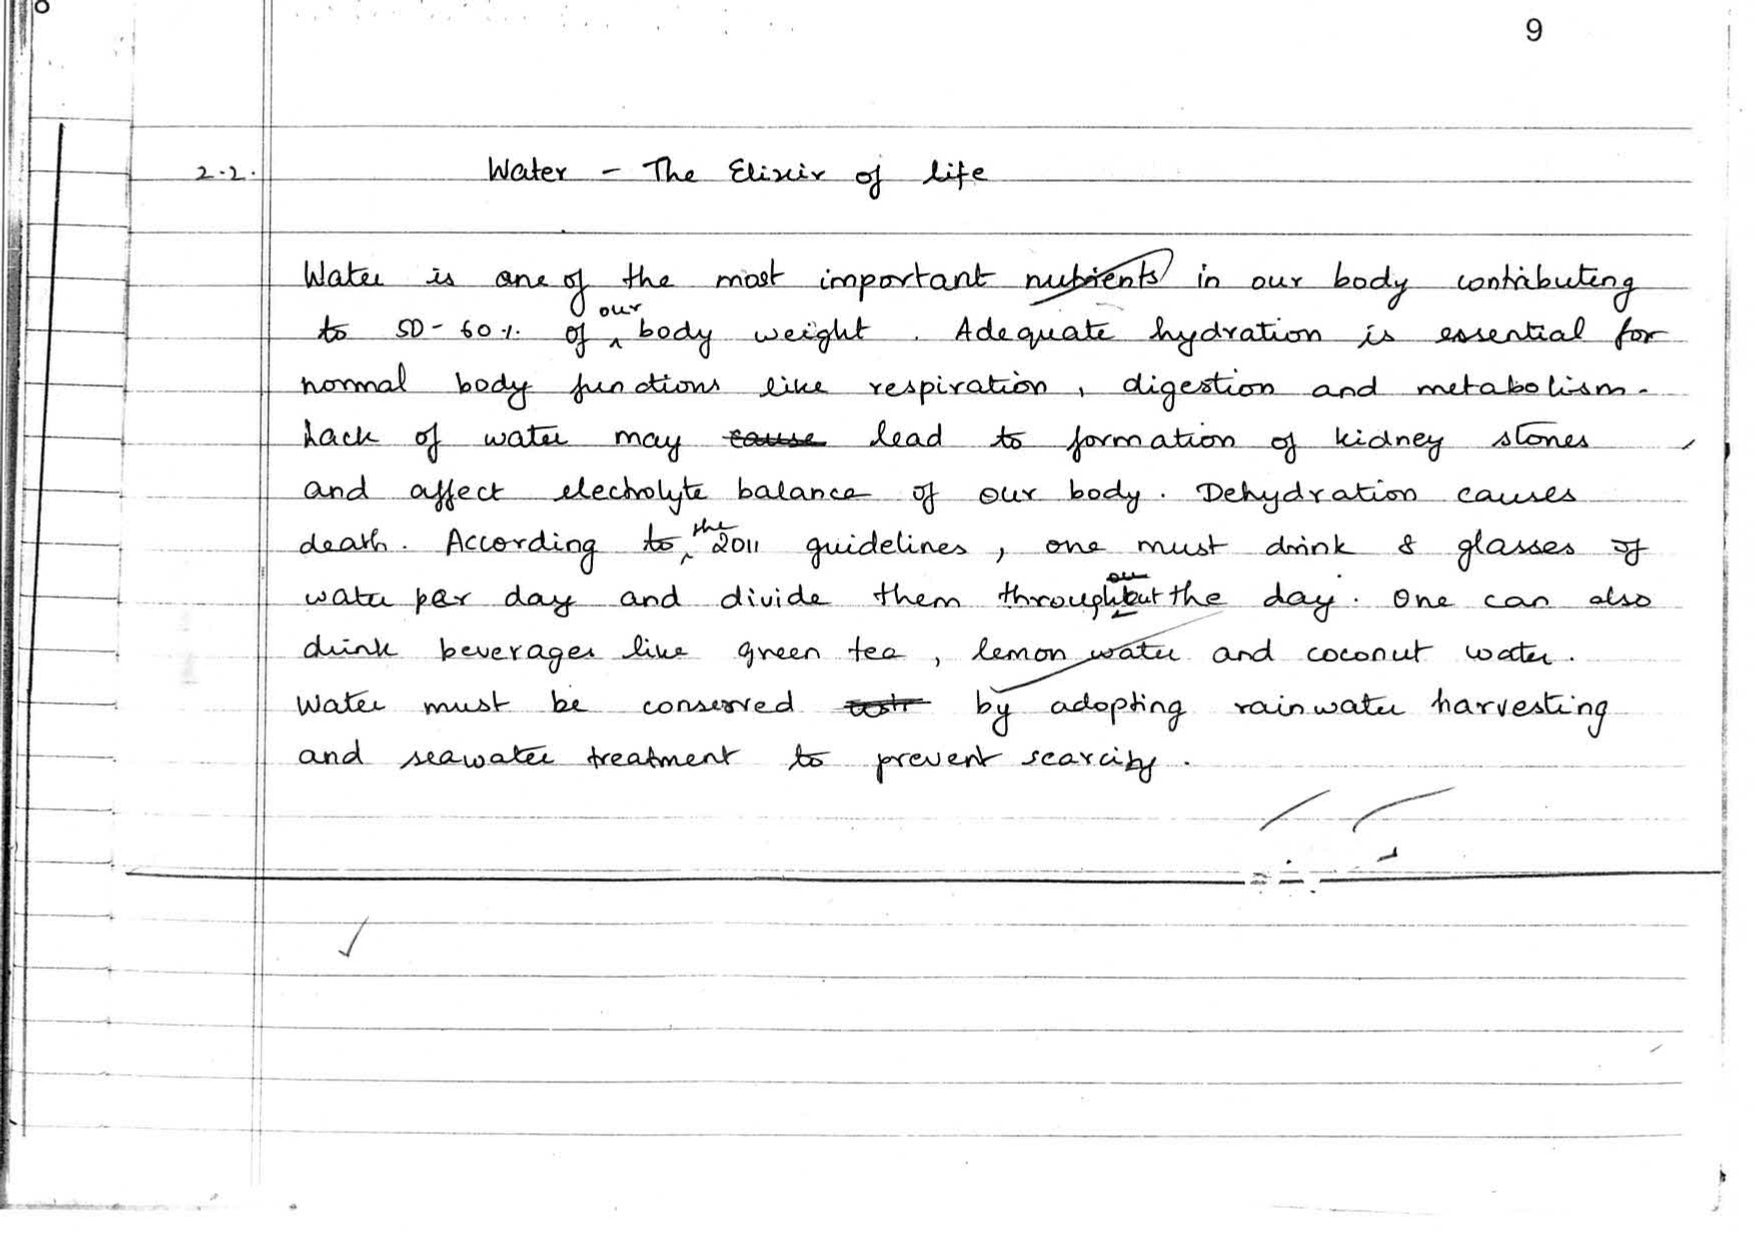 9
2.2. Water - The Elixir of life
Water is one of the most important nutrients in our body contributing
to 50-60% of our body weight. Adequate hydration is essential for
normal body functions like respiration, digestion and metabolism.
Lack of water may cause lead to formation of kidney stones
and affect electrolyte balance of our body. Dehydration causes
death. According to the 2011 guidelines, one must drink 8 glasses of
water per day and divide them throughout the day. One can also
drink beverages like green tea, lemon water and coconut water.
Water must be conserved by adopting rainwater harvesting
and seawater treatment to prevent scarcity.